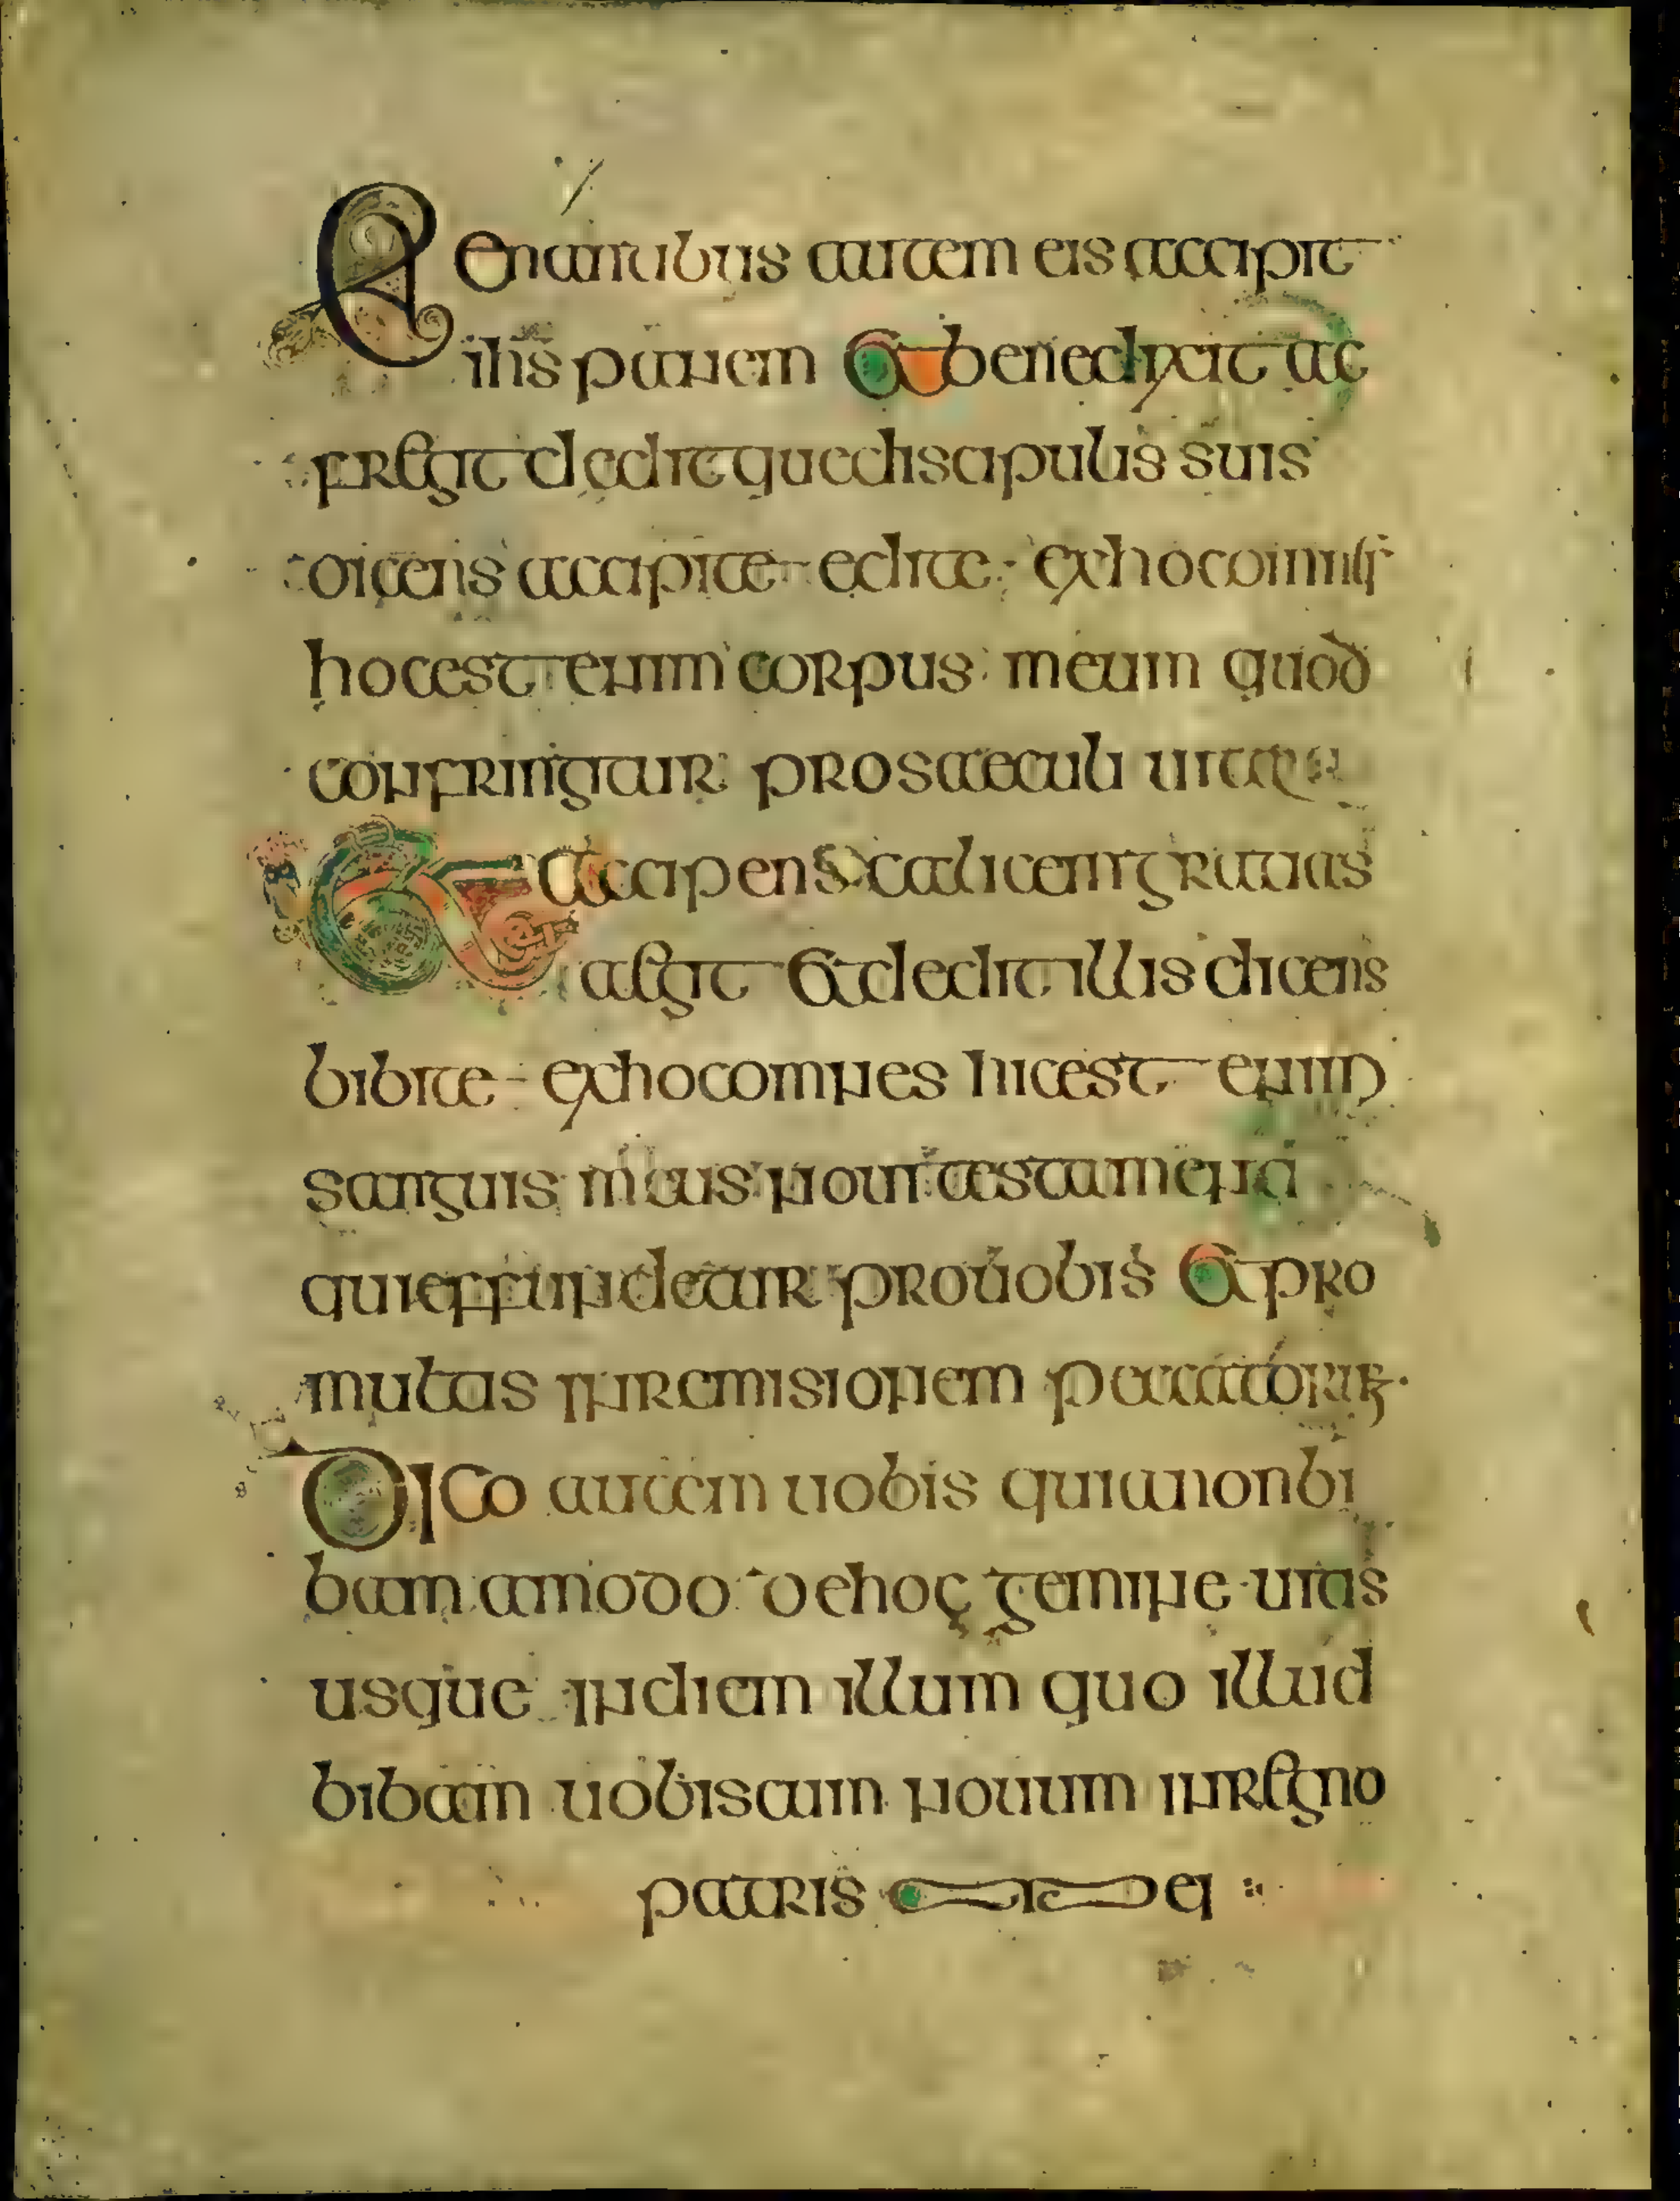 Cenantibus autem eis accipit
ihs panem et benedixit ac
fregit deditque discipulis suis
dicens accipite edite ex hoc omnes
hoc est enim corpus meum quod
confringitur pro saeculi uita
Et accipens calicem gratias
aegit et dedit illis dicens
bibite ex hoc omnes hic est enim
sanguis meus noui testamenti
qui effundetur pro uobis et pro
multis in remisionem peccatorum
Dico autem uobis quia non bi
bam amodo de hoc gemine uitis
usque in diem illum quo illud
bibam uobiscum nouum in regno
patris mei